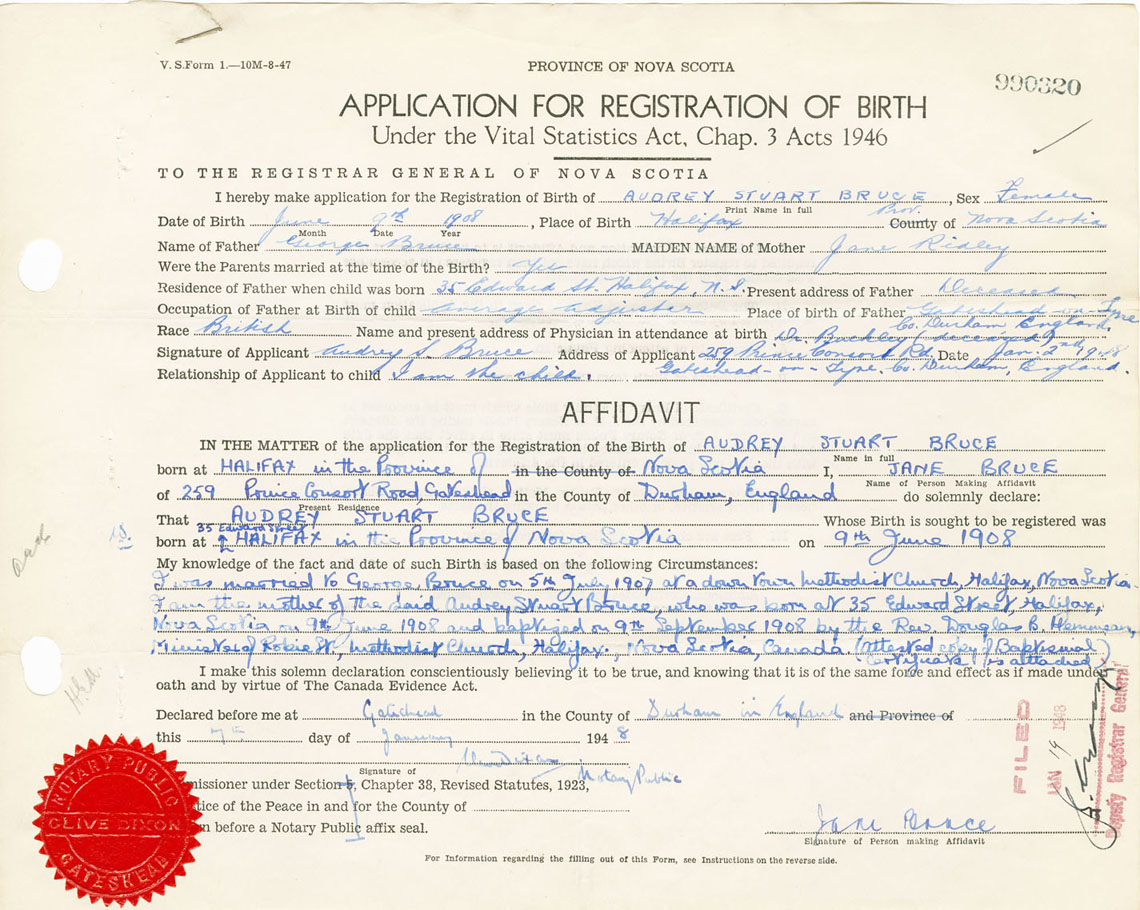 V. S. Form 1.—10M-8-47
PROVINCE OF NOVA SCOTIA
990320
APPLICATION FOR REGISTRATION OF BIRTH
Under the Vital Statistics Act, Chap. 3 Acts 1946
TO THE REGISTRAR GENERAL OF NOVA SCOTIA
I hereby make application for the Registration of Birth of AUDREY STUART BRUCE, Sex Female
Print Name in full
Prov.
Date of Birth June 9th 1908, Place of Birth Halifax County of Nova Scotia
Month Date Year
Name of Father George Bruce MAIDEN NAME of Mother Jane Ridley
Were the Parents married at the time of the Birth? Yes
Residence of Father when child was born 35 Edward St. Halifax, N.S. Present address of Father Deceased
Occupation of Father at Birth of child Average Adjuster Place of birth of Father Gateshead-on-Tyne
Co. Durham England.
Race British Name and present address of Physician in attendance at birth Dr. Buckley deceased
Signature of Applicant Audrey S. Bruce Address of Applicant 259 Prince Consort Rd. Date Jan. 2nd 1948
Relationship of Applicant to child I am the child. Gateshead-on-Tyne. Co. Durham, England.
AFFIDAVIT
IN THE MATTER of the application for the Registration of the Birth of AUDREY STUART BRUCE
Name in full
born at HALIFAX in the Province of in the County of Nova Scotia I, JANE BRUCE
Name of Person Making Affidavit
of 259 Prince Consort Road, Gateshead in the County of Durham, England do solemnly declare:
Present Residence
That AUDREY STUART BRUCE Whose Birth is sought to be registered was
35 Edward Street
born at HALIFAX in the Province of Nova Scotia on 9th June 1908
My knowledge of the fact and date of such Birth is based on the following Circumstances:
I was married to George Bruce on 5th July 1907 at a down town Methodist Church, Halifax, Nova Scotia.
I am the mother of the said Audrey Stuart Bruce, who was born at 35 Edward Street, Halifax,
Nova Scotia on 9th June 1908 and baptized on 9th September 1908 by the Rev. Douglas B. Hemmeon,
Minister of Robie St., Methodist Church, Halifax, Nova Scotia, Canada. (Attested copy of Baptismal
Certificate is attached)
I make this solemn declaration conscientiously believing it to be true, and knowing that it is of the same force and effect as if made under
oath and by virtue of The Canada Evidence Act.
Declared before me at Gateshead in the County of Durham in England and Province of
this 7th day of January 1948
Clive Dixon
Signature of
Notary Public
missioner under Section 5, Chapter 38, Revised Statutes, 1923,
tice of the Peace in and for the County of
n before a Notary Public affix seal.
Jane Bruce
Signature of Person making Affidavit
For Information regarding the filling out of this Form, see Instructions on the reverse side.
NOTARY PUBLIC
CLIVE DIXON
GATESHEAD
FILED
JAN 19 1948
Deputy Registrar General